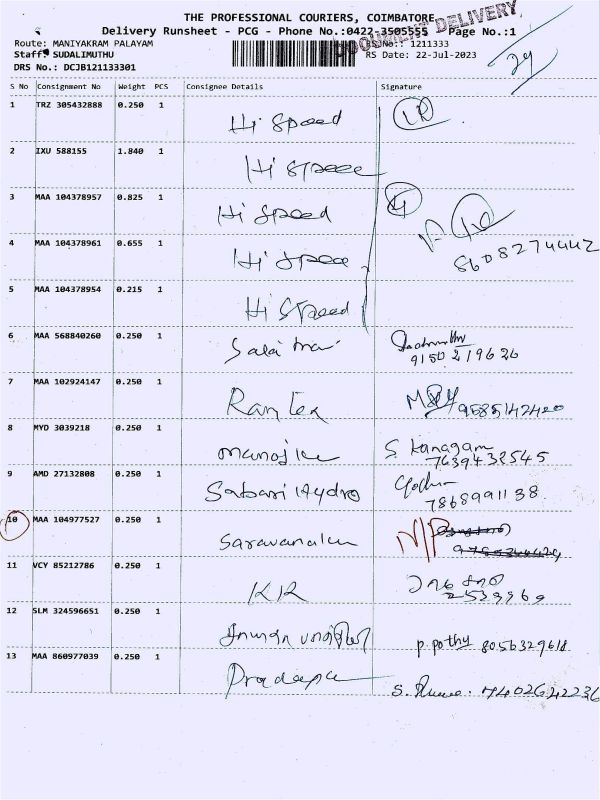 THE PROFESSIONAL COURIERS, COIMBATORE
Delivery Runsheet - PCG - Phone No.:0422-3505555 Page No.:1
DOCUMENT DELIVERY
Route: MANIYAKRAM PALAYAM No.: 1211333
Staff: SUDALIMUTHU RS Date: 22-Jul-2023
DRS No.: DCJB121133301
S No Consignment No Weight PCS Consignee Details Signature
1 TRZ 305432888 0.250 1 Hi Speed
2 IXU 588155 1.840 1 Hi Speee
3 MAA 104378957 0.825 1 Hi Speed
8608274442
4 MAA 104378961 0.655 1 Hi Spee
5 MAA 104378954 0.215 1 Hi Speed
6 MAA 568840260 0.250 1
9150219620
7 MAA 102924147 0.250 1 Ran Tex
9585142420
8 MYD 3039218 0.250 1 Manoj S. Kanagam
7639432545
9 AMD 27132808 0.250 1 Sabari Hydro
7868991138
10 MAA 104977527 0.250 1 Saravanaku
11 VCY 85212786 0.250 1 KR
2539969
12 SLM 324596651 0.250 1 P. Pothy 8056329618
13 MAA 860977039 0.250 1 Pradeepa S. 7402642236